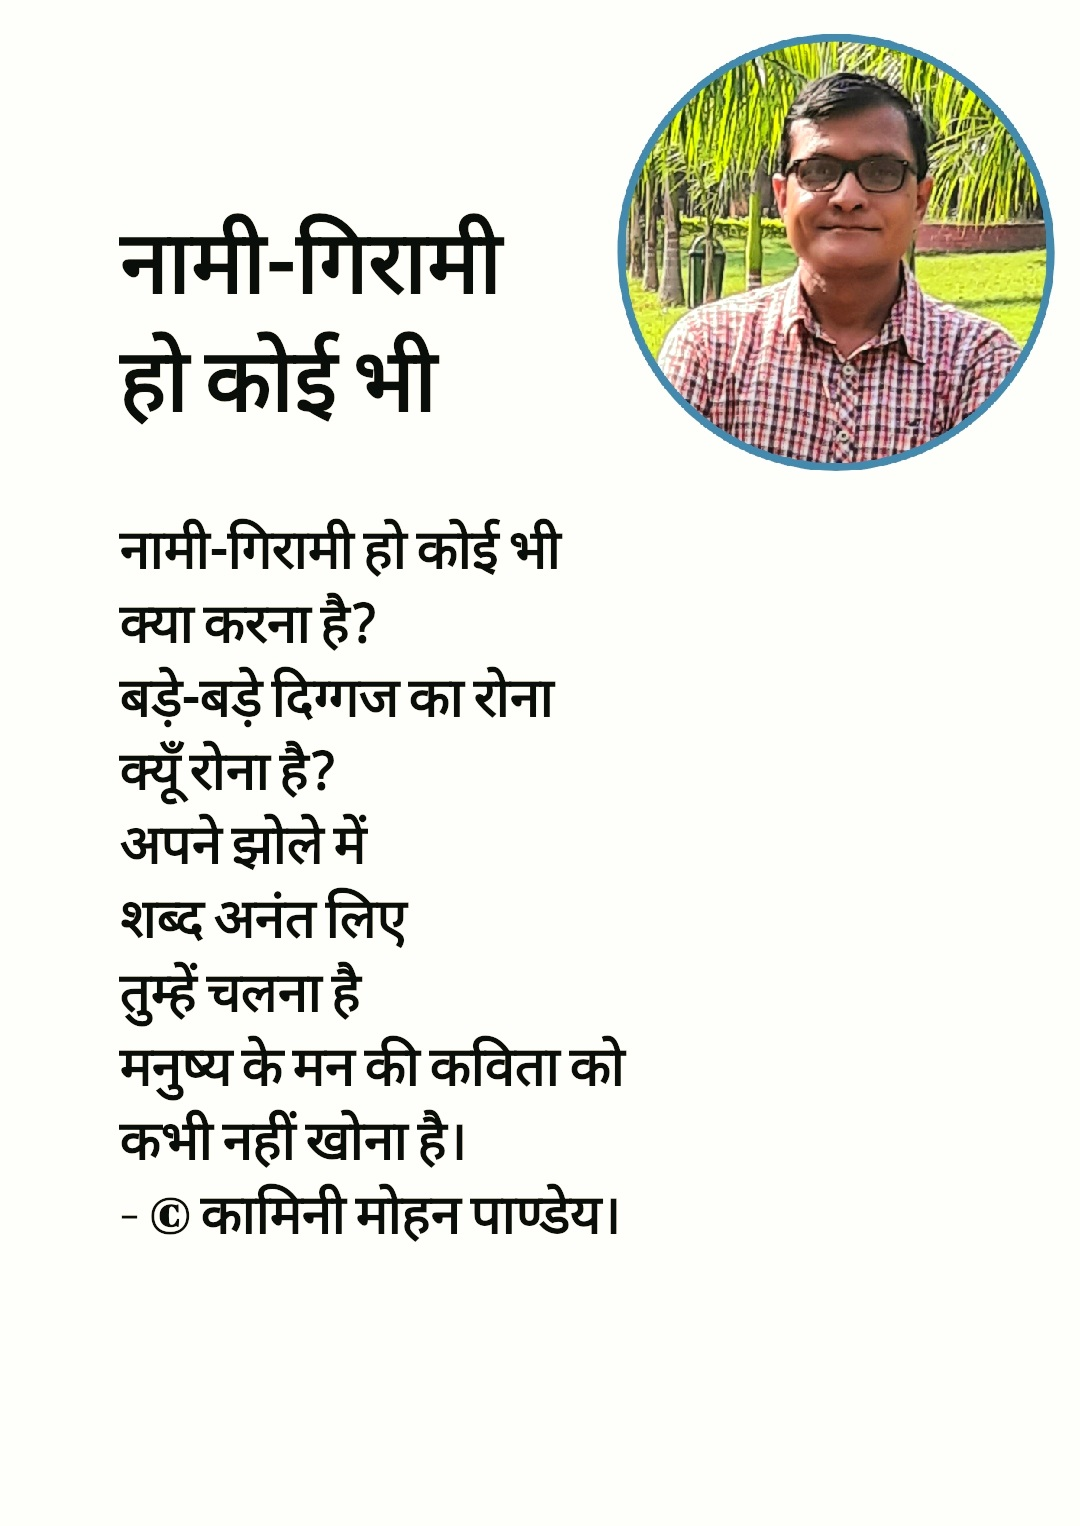 नामी-गिरामी
हो कोई भी
नामी-गिरामी हो कोई भी
क्या करना है?
बड़े-बड़े दिग्गज का रोना
क्यूँ रोना है?
अपने झोले में
शब्द अनंत लिए
तुम्हें चलना है
मनुष्य के मन की कविता को
कभी नहीं खोना है।
- © कामिनी मोहन पाण्डेय।